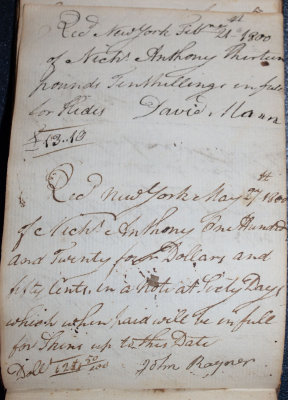 Recd New York Febry 21st 1800
of Nichs Anthony Thirteen
pounds Ten Shillings in full
for Hides David
£13..10
Recd New York May 27th 1800
of Nichs Anthony One Hundred
and Twenty four Dollars and
fifty Cents in a Note at Sixty Days
which when paid will be in full
for Skins up to this Date
Dolls 124 50/100 John Rayner